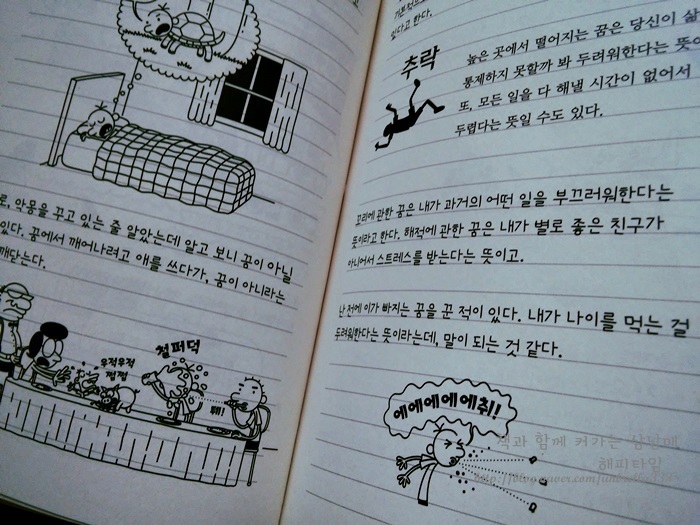 로, 악몽을 꾸고 있는 줄 알았는데 알고 보니 꿈이 아닐
있다. 꿈에서 깨어나려고 애를 쓰다가, 꿈이 아니라는
깨닫는다.
우적우적
쩝쩝
철퍼덕
퉤!
있다고 한다.
추락
높은 곳에서 떨어지는 꿈은 당신이 삶
통제하지 못할까 봐 두려워한다는 뜻이
또, 모든 일을 다 해낼 시간이 없어서
두렵다는 뜻일 수도 있다.
꼬리에 관한 꿈은 내가 과거의 어떤 일을 부끄러워한다는
뜻이라고 한다. 해적에 관한 꿈은 내가 별로 좋은 친구가
아니어서 스트레스를 받는다는 뜻이고.
난 전에 이가 빠지는 꿈을 꾼 적이 있다. 내가 나이를 먹는 걸
두려워한다는 뜻이라는데, 말이 되는 것 같다.
에에에에에취!
책과 함께 커가는 삼남매
해피타임